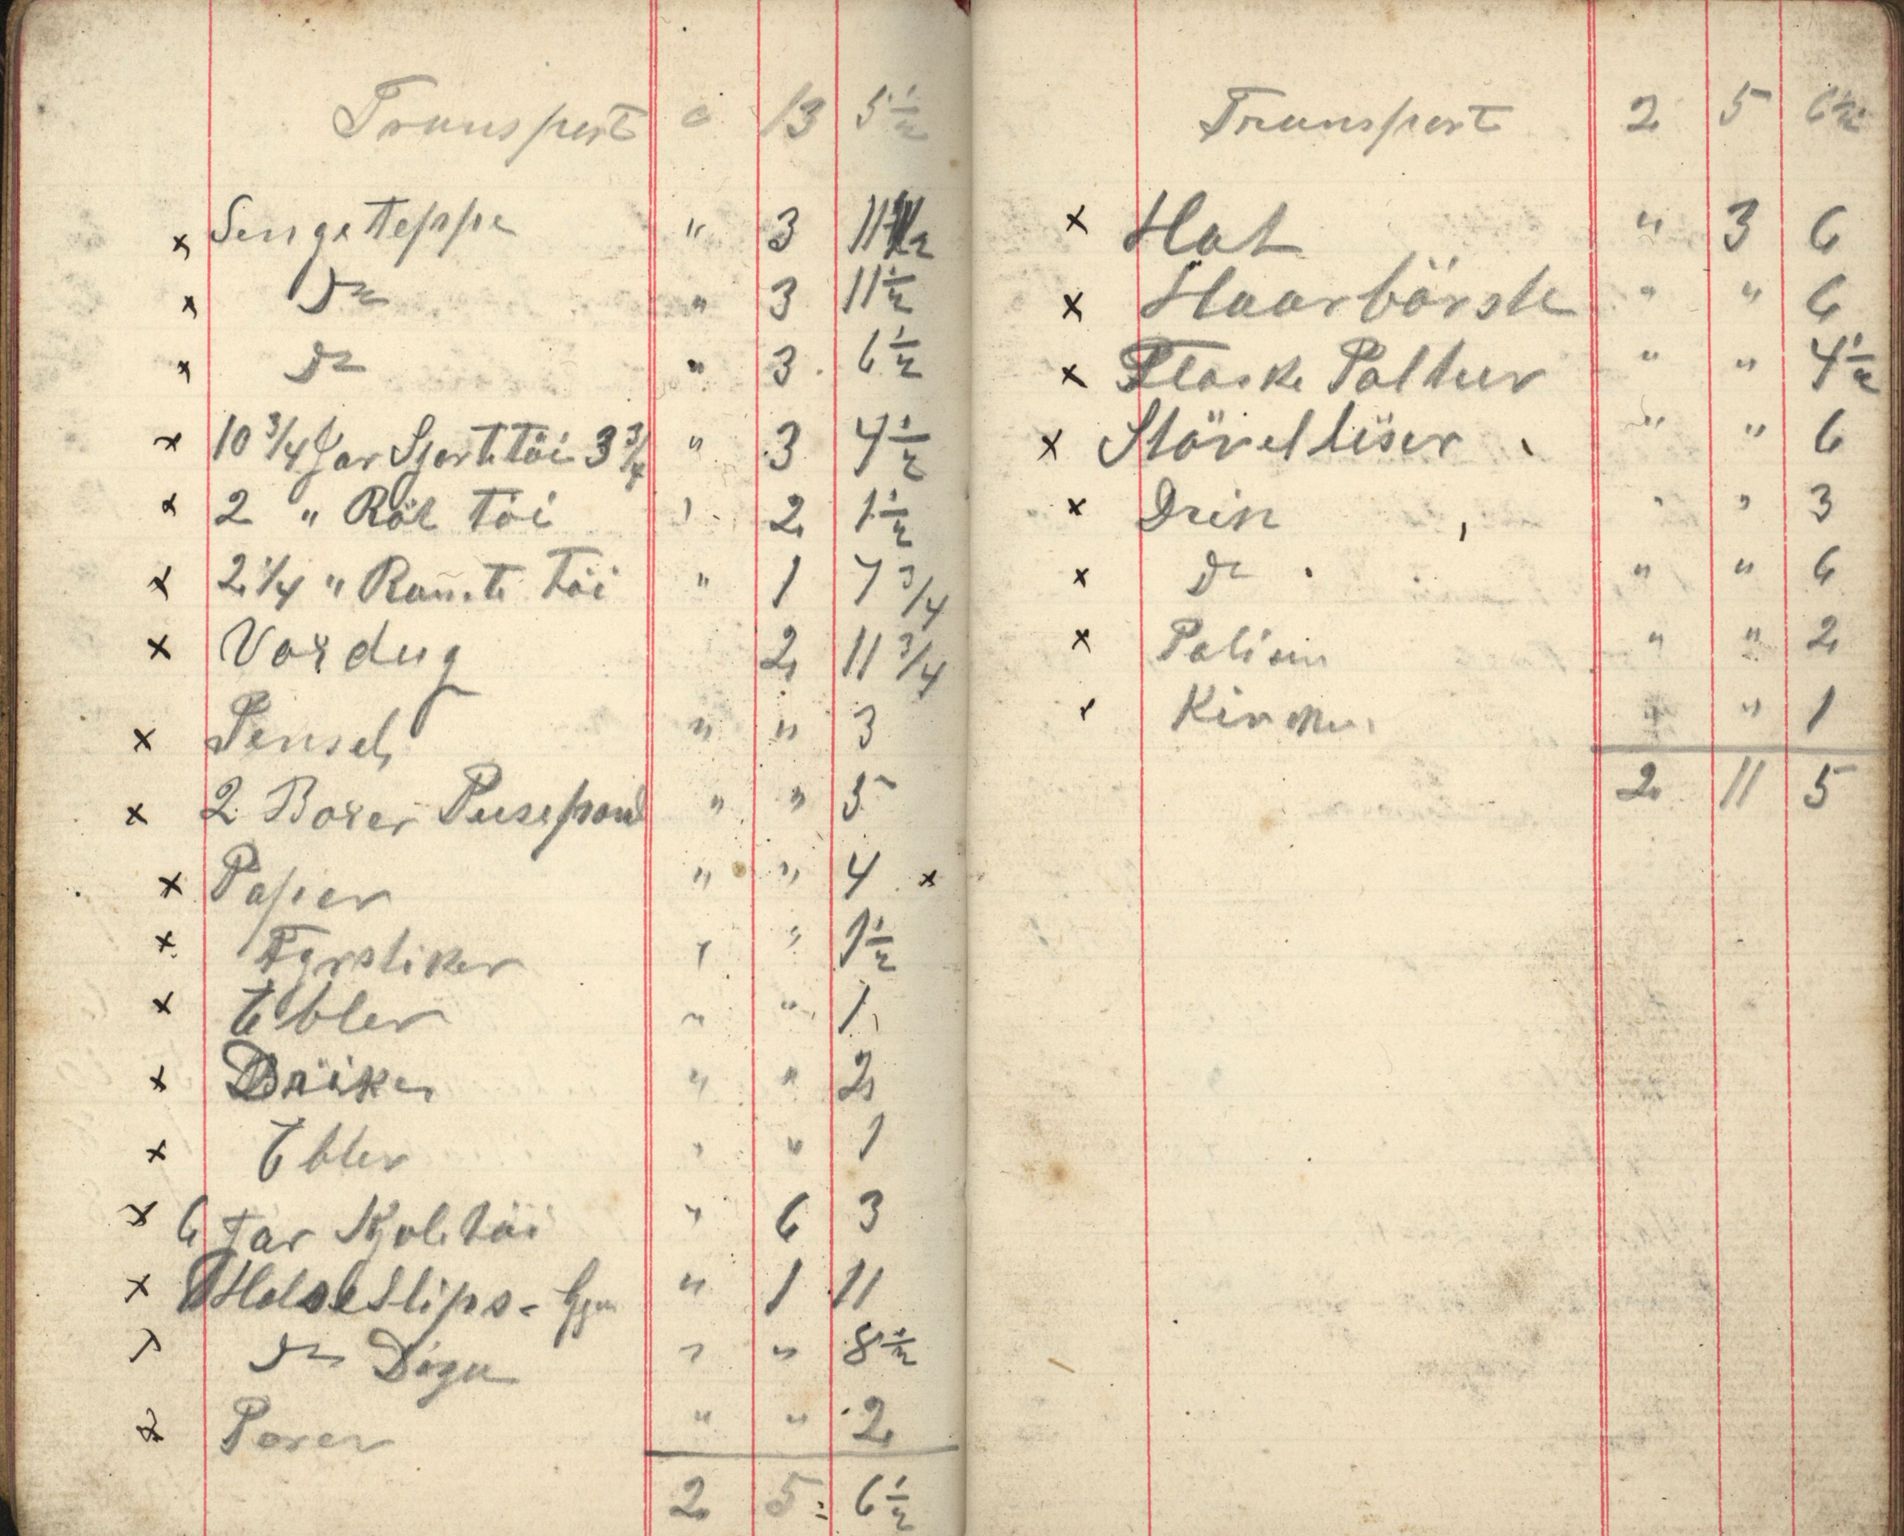 Transport 0 13 5½
x Sengeteppe " 3 11½
x Do " 3 11½
x Do " 3 6½
x 10 3/4 Jar Sjorttöi 3 3/4 " 3 4½
x 2 " Röt töi " 2 1½
x 2 1/4 " töi " 1 7 3/4
x Voxdug 2 11 3/4
x Pensel " " 3
x 2 Boxer Pusepom " " 5
x Paper " " 4 x
x Fyrstiker " " 1½
x Ebler " " 1
x " " 2
x Ebler " " 1
x 6 Jar Kjoletöi " 6 3
x HalseSlips - " 1 11
Do " " 8½
x Pærer " " 2
2 5 6½
Transport 2 5 6½
x Hat " 3 6
x Haarbörste " " 6
x Flaske Poltur " " 4½
x Stövelliser " " 6
x Drik " " 3
x Do " " 6
x " " 2
x " " 1
2 11 5